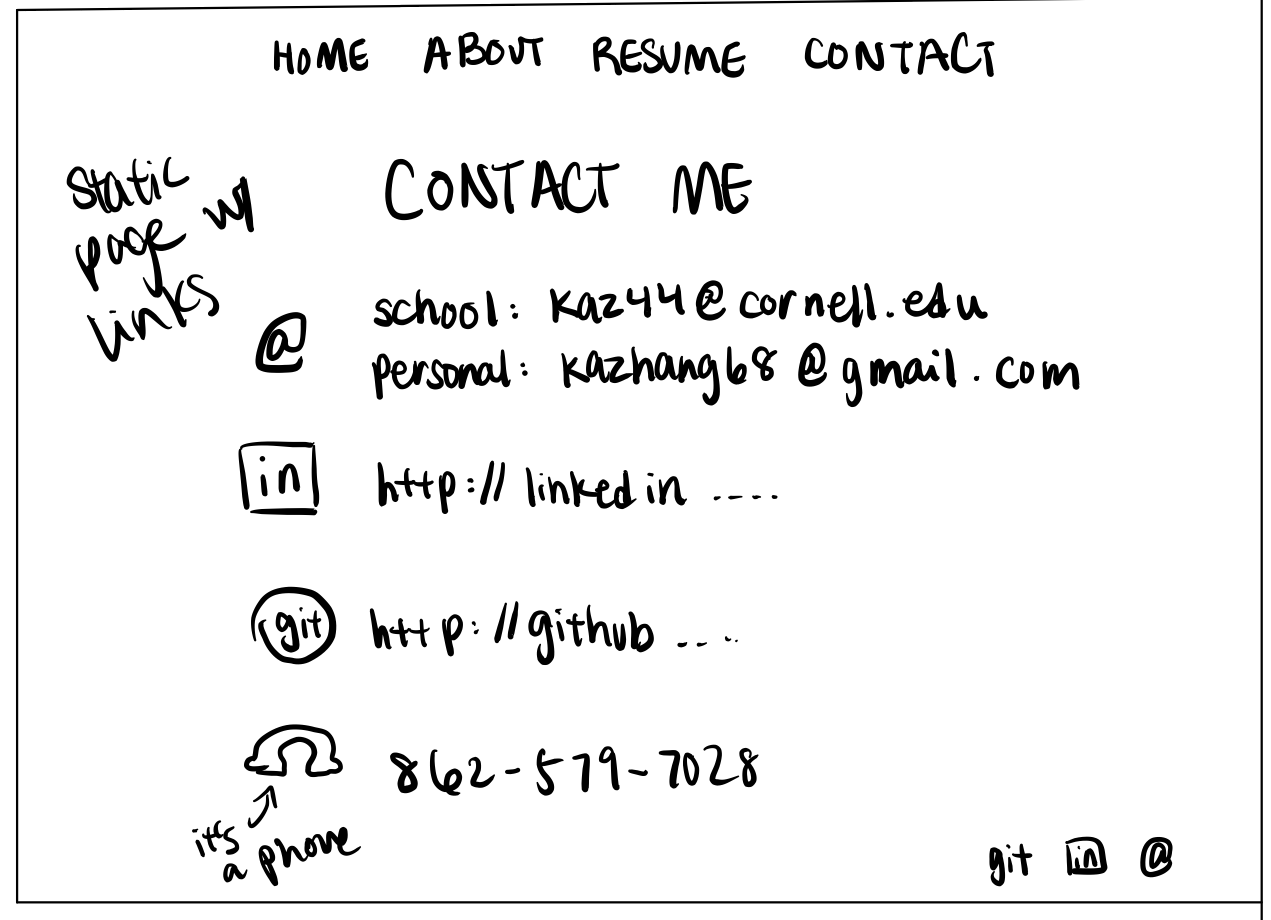 HOME ABOUT RESUME CONTACT
static
page w/
links
CONTACT ME
@
school: kaz44@cornell.edu
personal: kazhang68@gmail.com
in
http://linkedin ....
git
http://github ....
862-579-7028
it's
a phone
git in @